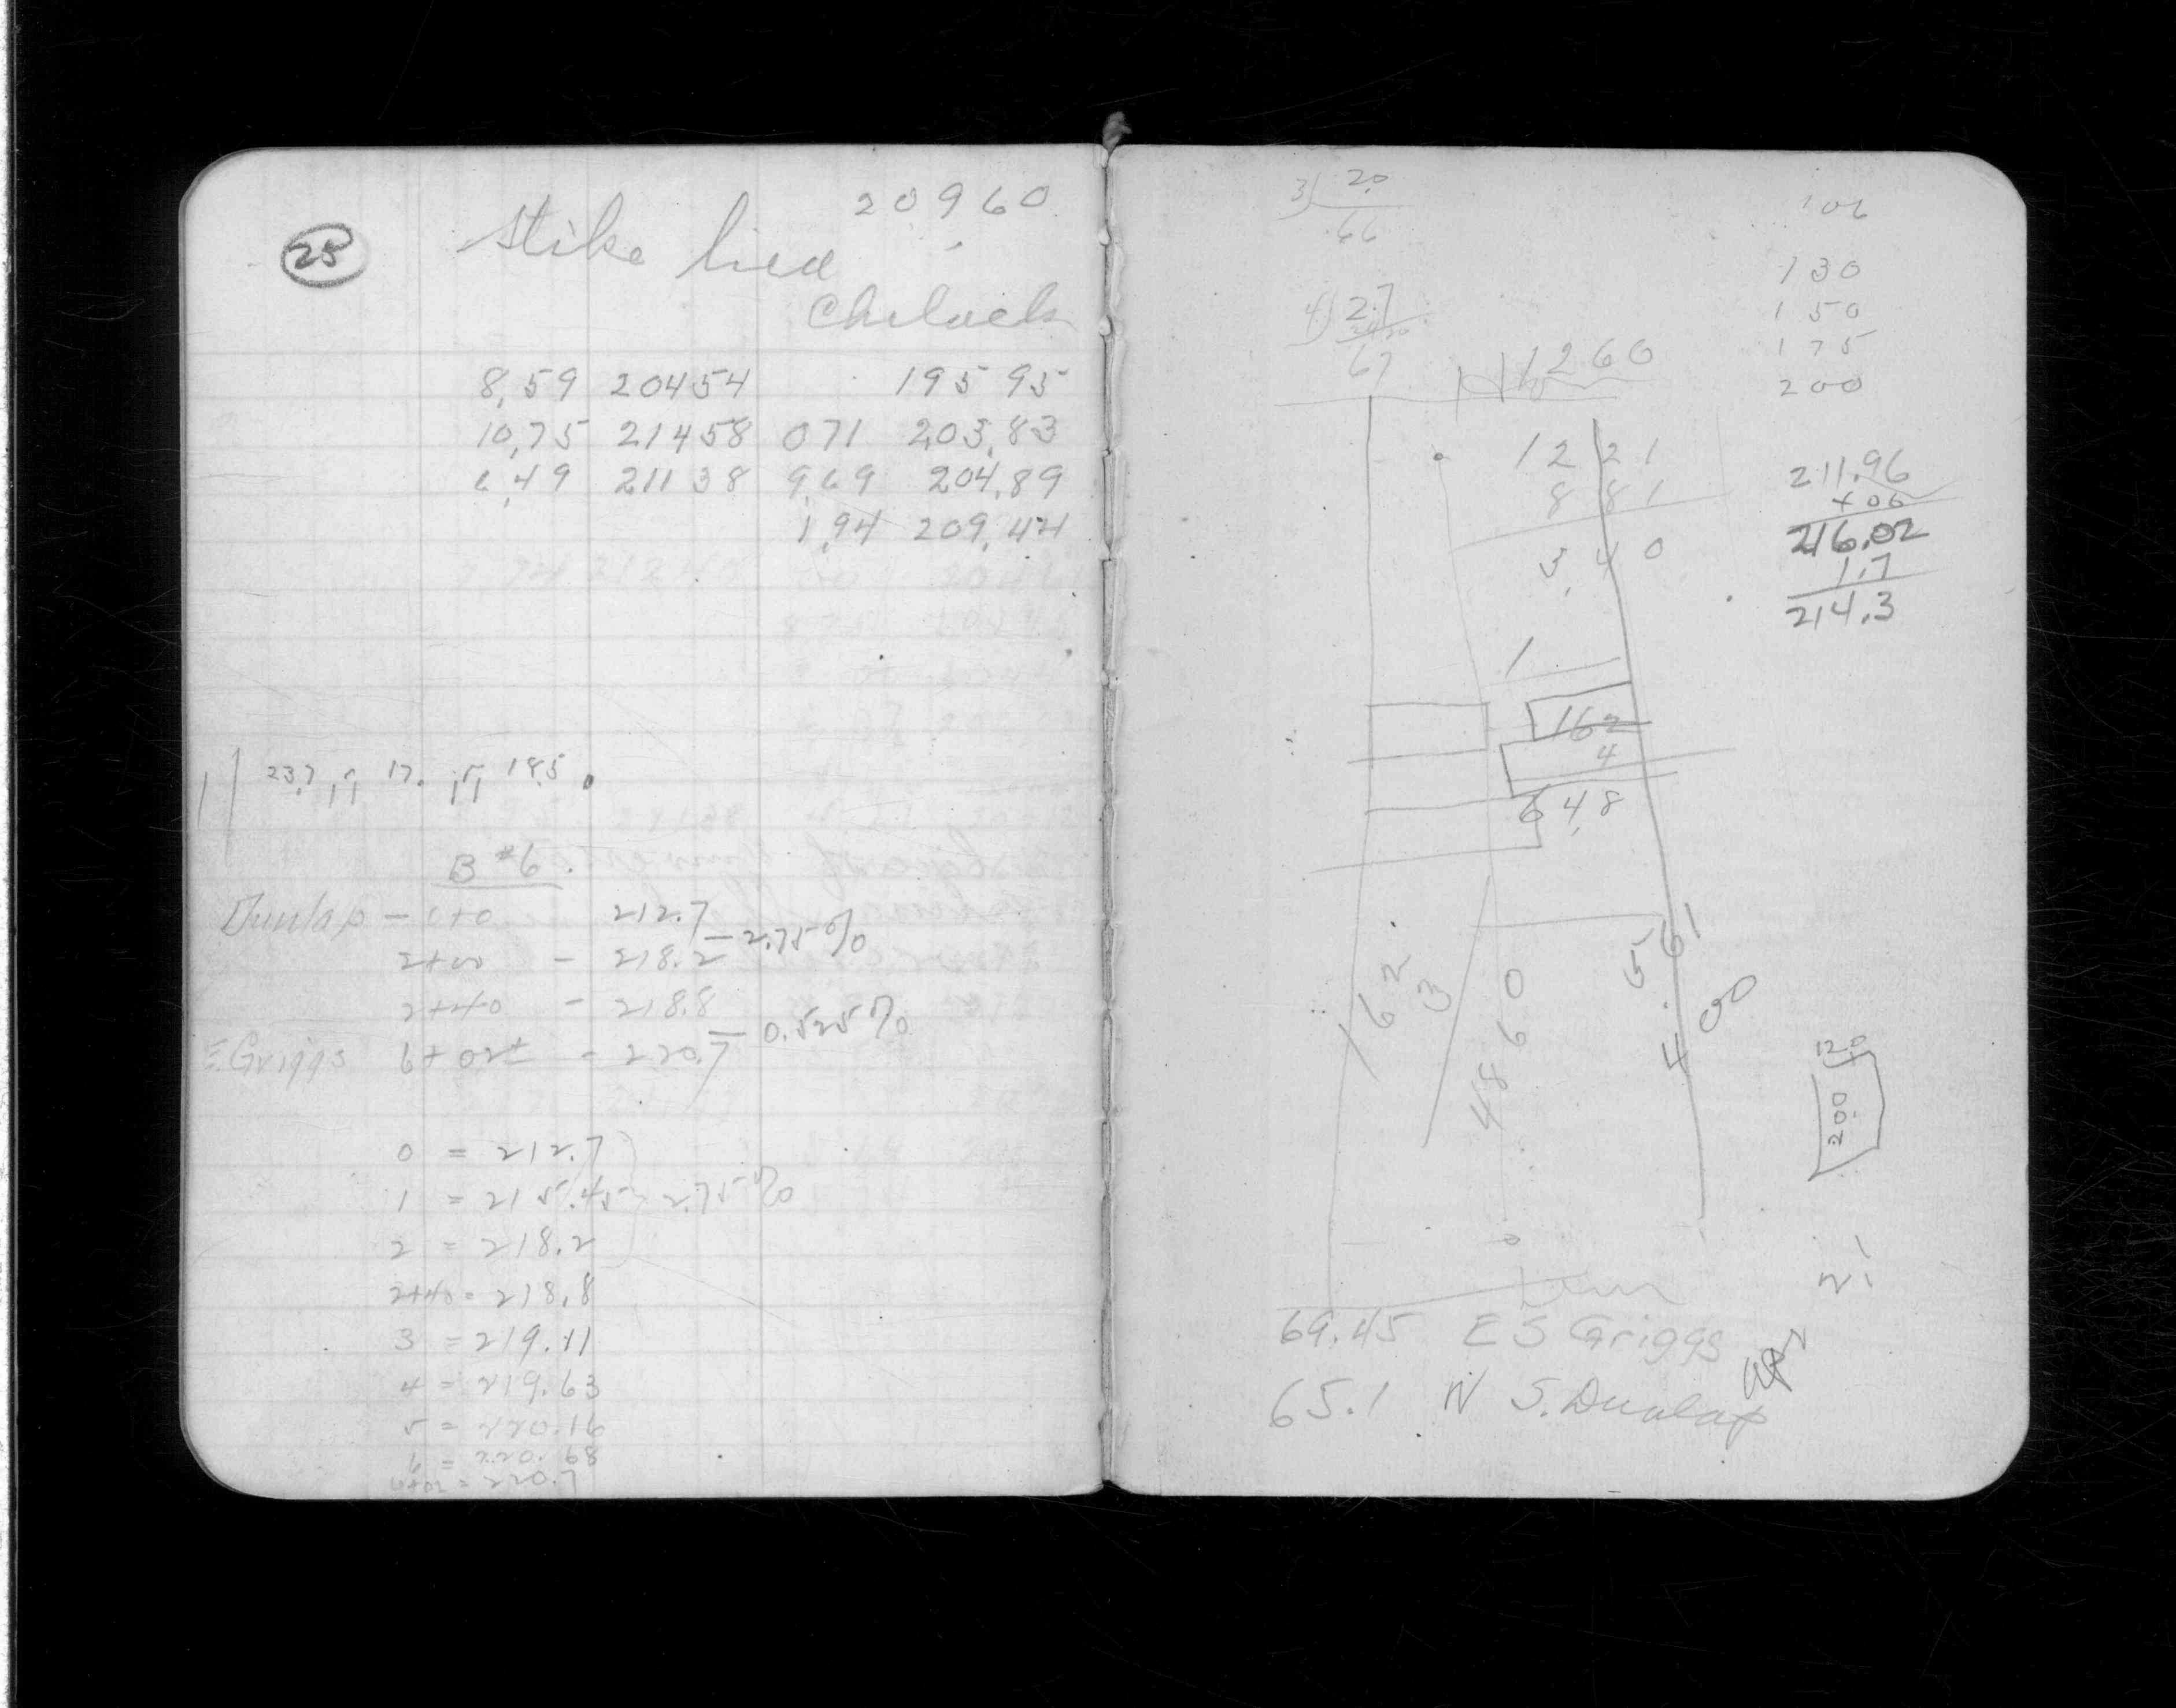 25
20960
Stike lied
Chelack
8,59 20454 195 95
10,75 21458 071 203,83
6,49 21138 9,69 204,89
1,94 209,44
237 17. 185
B #6.
Dunlap - 0+0 212.7
- 2.75%
2+00 - 218.2
2+40 - 218.8
- 0.525%
E. Griggs 6+02± - 220.7
0 = 212.7
1 = 215.45 2.75%
2 = 218.2
2+40 = 218.8
3 = 219.11
4 = 219.63
5 = 220.16
6 = 220.68
6+02 = 220.7
3) 20
66
4) 2.7
67
1260
1221
881
3,40
1
162
4
64,8
162
3
4860
4.561
00
106
130
150
175
200
211.96
+06
216.02
1.7
214.3
120
200
69.45 E S Griggs
65.1 N S. Dunlap